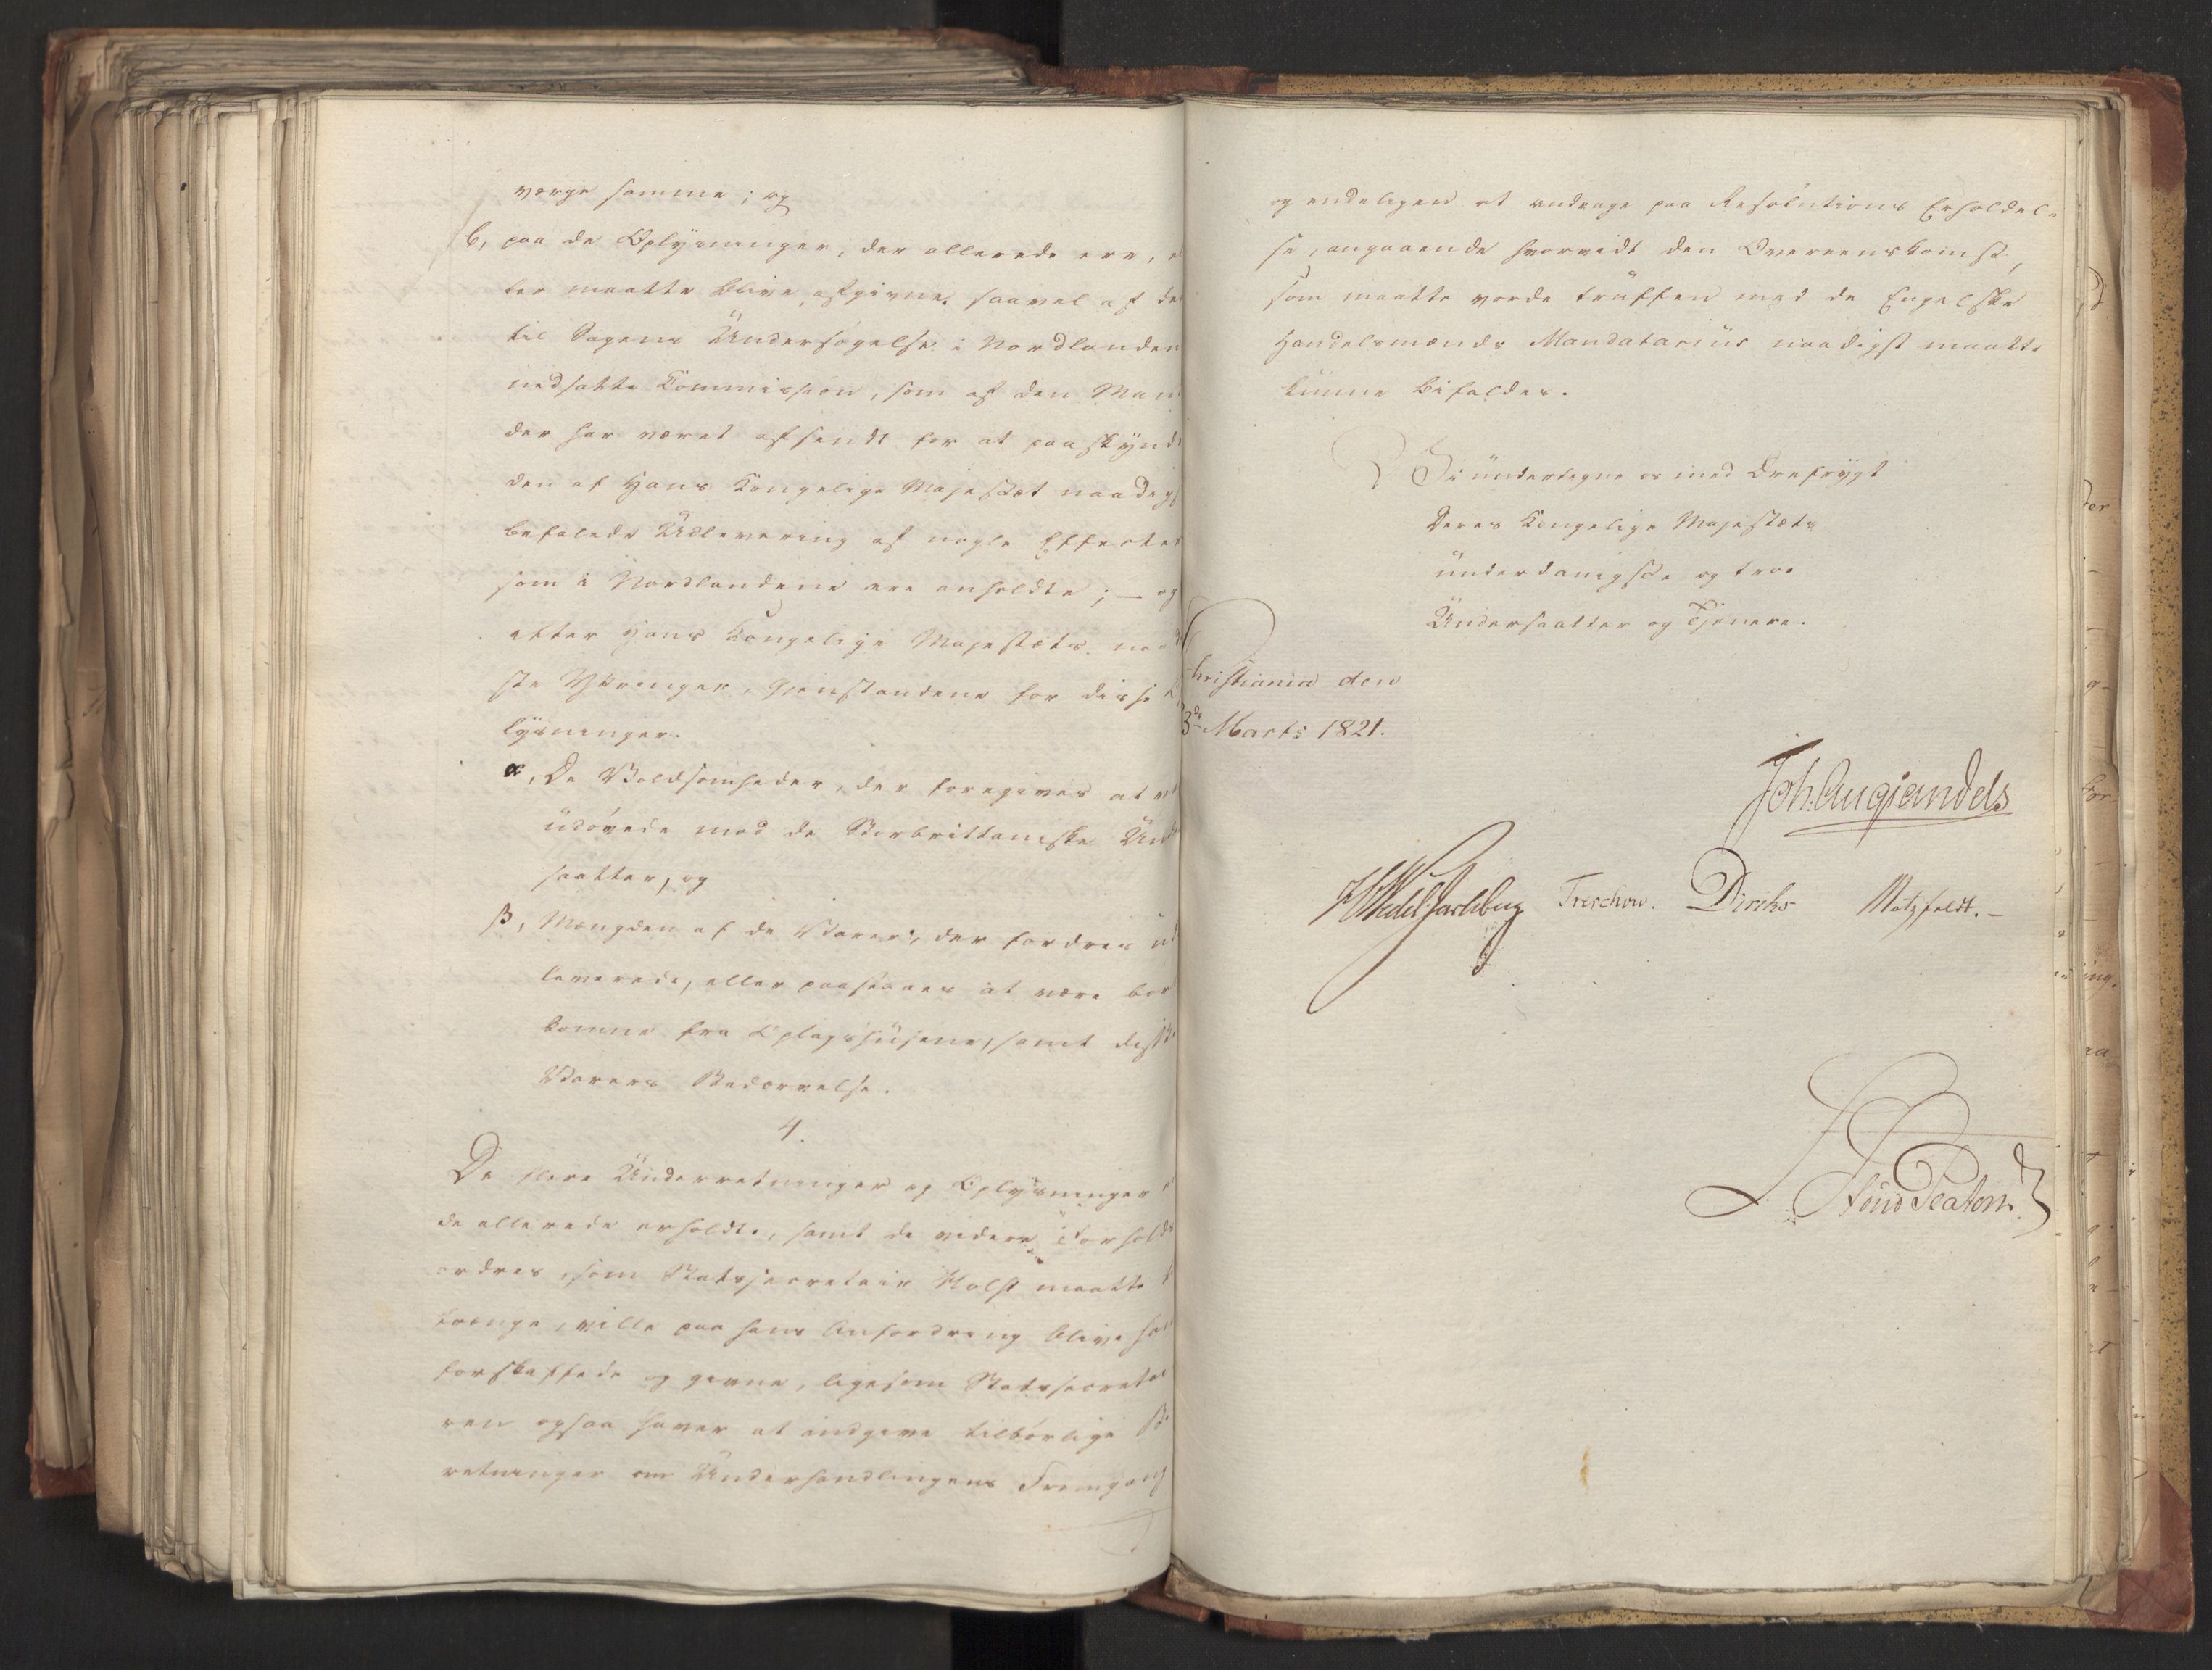 værge samme; og
b, paa de Oplysninger, der allerede ere, el
ler maatte blive afgivne, saavel af den
til Sagens Undersøgelse i Nordlanden
nedsatte Commission, som af den Man
der har været afsendt for at paaskynd
den af Hans Kongelige Majestæt naadigst
befalede Udlevering af nogle Effecter
som i Nordlandene ere anholdte; — og
efter Hans Kongelige Majestæts naad
ste Yttringer, Gjenstandene for disse
lysninger.
α, De Voldsomheder, der foregives at v
udövede mod de Storbrittaniske Und
saatter, og
β, Mængden af de Varer, der fordres ud
leverede, eller paastaaes at være bort
komne fra Oplagshusene, samt disse
Varers Bedærvelse.
4.
De flere Underretninger og Oplysninger
de allerede erholdte, samt de videre Forhold
ordres, som Statssecretair Holst maatte
trænge, ville paa hans Anfordring blive ham
forskaffede og givne, ligesom Statssecretai
ren ogsaa haver at indgive tilbörlige Be
retninger om Underhandlingens Fremgang
og endeligen at andrage paa Resolutions Erholdel-
se, angaaende hvorvidt den Overeenskomst,
som maatte vorde truffen med de Engelske
Handelsmænds Mandatarius naadigst maatte
kunne bifaldes.
Vi undertegne os med Ærefrygt
Deres Kongelige Majestæts
underdanigste og troe
Undersaatter og Tjenere.
Christiania den
3de Marts 1821.
Joh. Aug Sandels
HWedel Jarlsberg Treschow. Diriks Motzfeldt. —